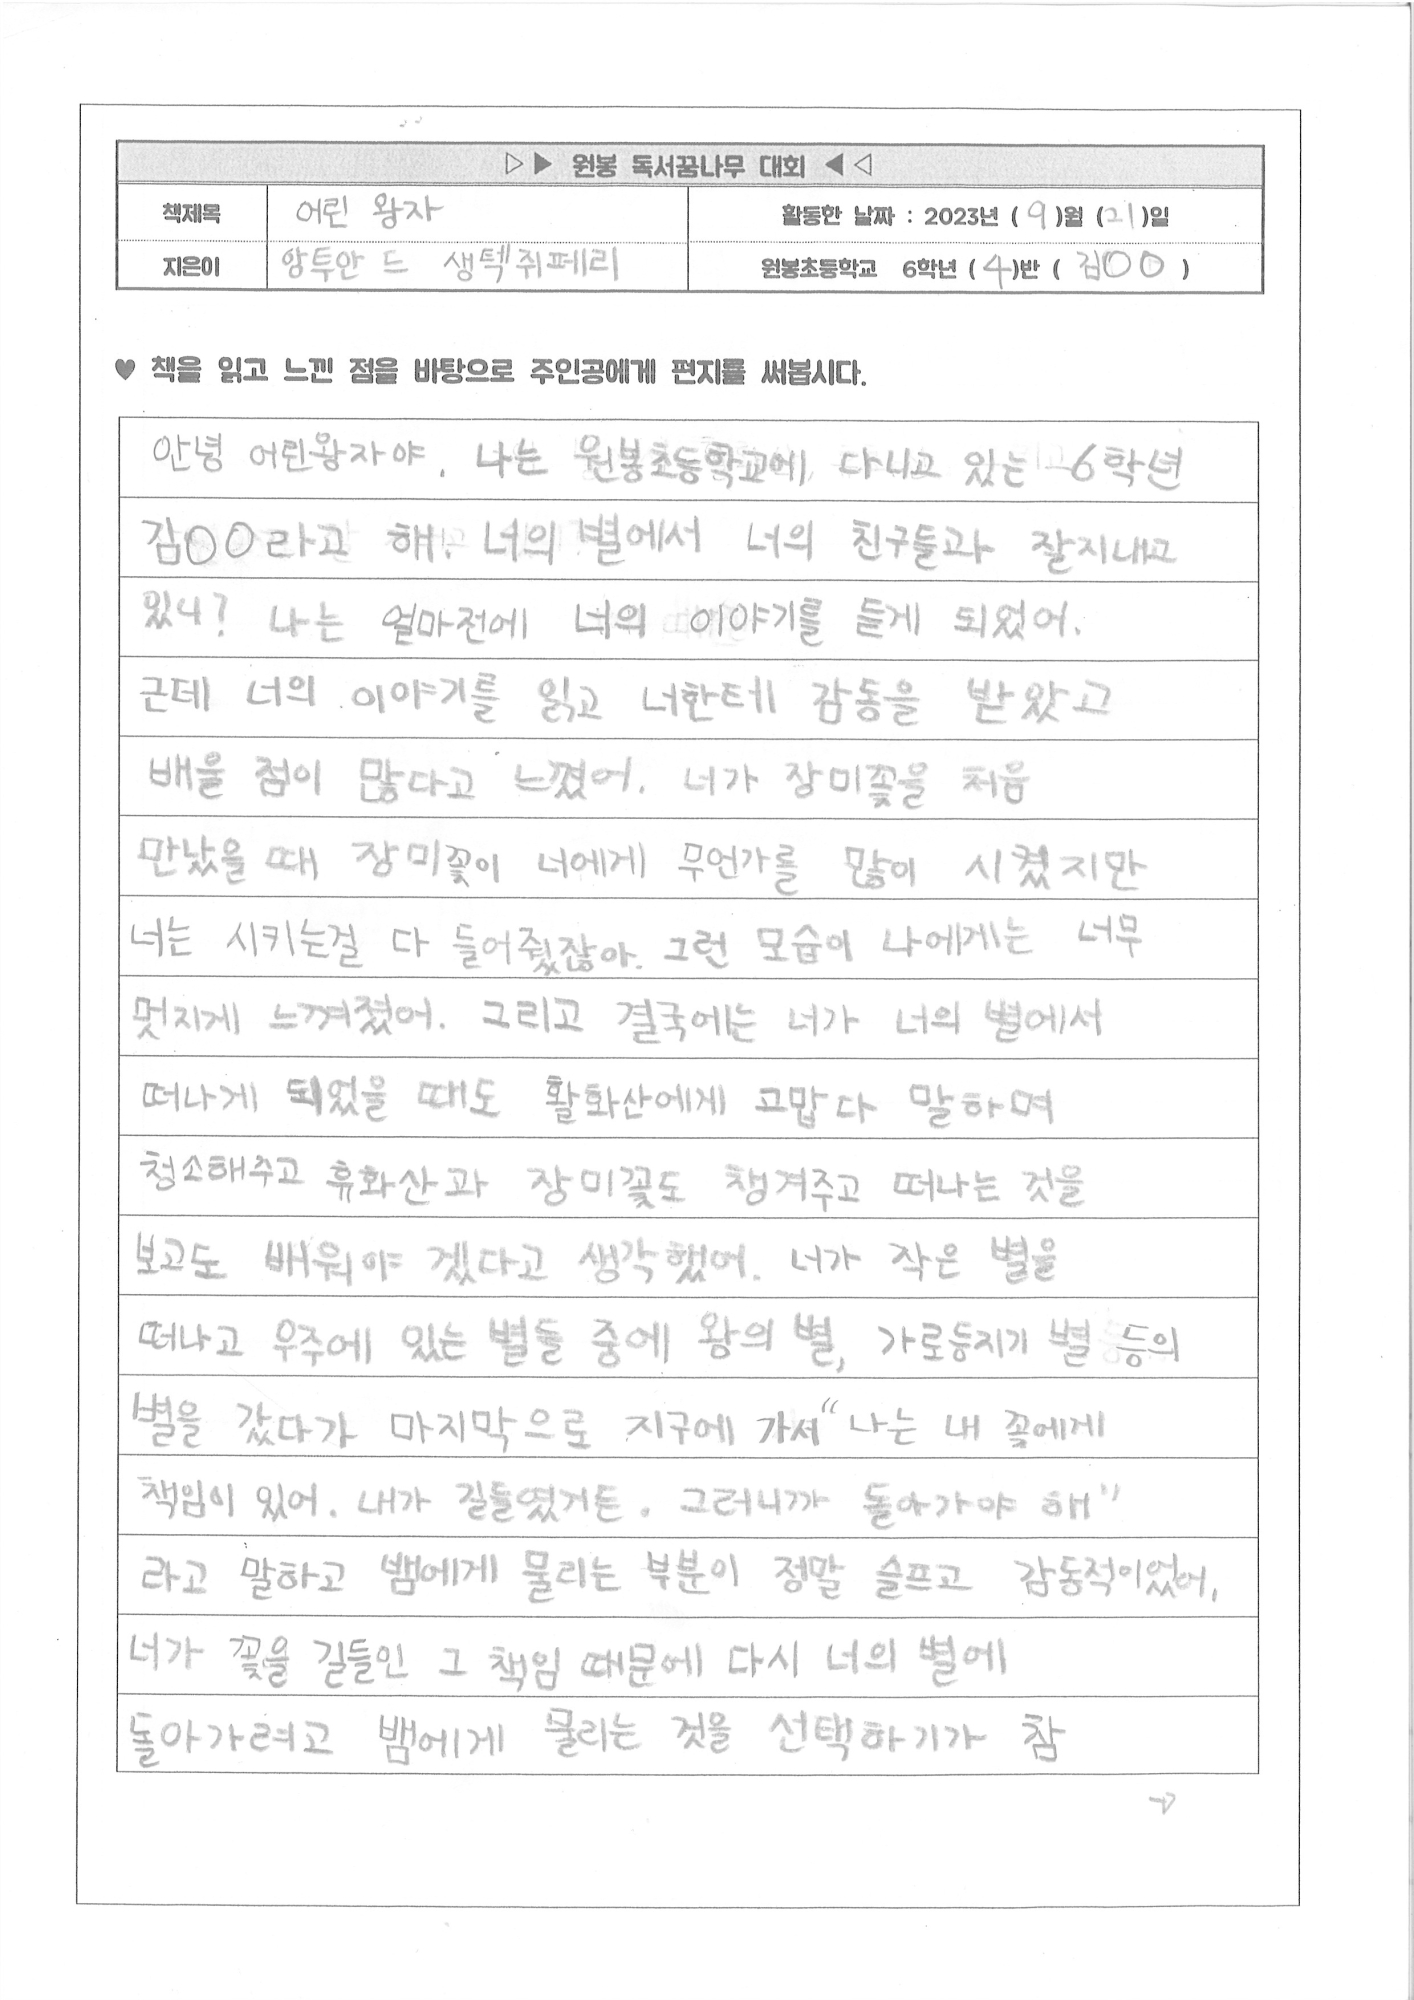 ▷▶ 원봉 독서꿈나무 대회 ◀◁
책제목 어린 왕자 활동한 날짜 : 2023년 (9)월 (21)일
지은이 앙투안 드 생텍쥐페리 원봉초등학교 6학년 (4)반 ( 김○○ )
♥ 책을 읽고 느낀 점을 바탕으로 주인공에게 편지를 써봅시다.
안녕 어린왕자야. 나는 원봉초등학교에 다니고 있는 6학년
김○○라고 해. 너의 별에서 너의 친구들과 잘지내고
있니? 나는 얼마전에 너의 이야기를 듣게 되었어.
근데 너의 이야기를 읽고 너한테 감동을 받았고
배울 점이 많다고 느꼈어. 너가 장미꽃을 처음
만났을 때 장미꽃이 너에게 무언가를 많이 시켰지만
너는 시키는걸 다 들어줬잖아. 그런 모습이 나에게는 너무
멋지게 느껴졌어. 그리고 결국에는 너가 너의 별에서
떠나게 되었을 때도 활화산에게 고맙다 말하며
청소해주고 휴화산과 장미꽃도 챙겨주고 떠나는 것을
보고도 배워야 겠다고 생각했어. 너가 작은 별을
떠나고 우주에 있는 별들 중에 왕의 별, 가로등지기 별 등의
별을 갔다가 마지막으로 지구에 가서 "나는 내 꽃에게
책임이 있어. 내가 길들였거든. 그러니까 돌아가야 해"
라고 말하고 뱀에게 물리는 부분이 정말 슬프고 감동적이었어.
너가 꽃을 길들인 그 책임 때문에 다시 너의 별에
돌아가려고 뱀에게 물리는 것을 선택하기가 참
→